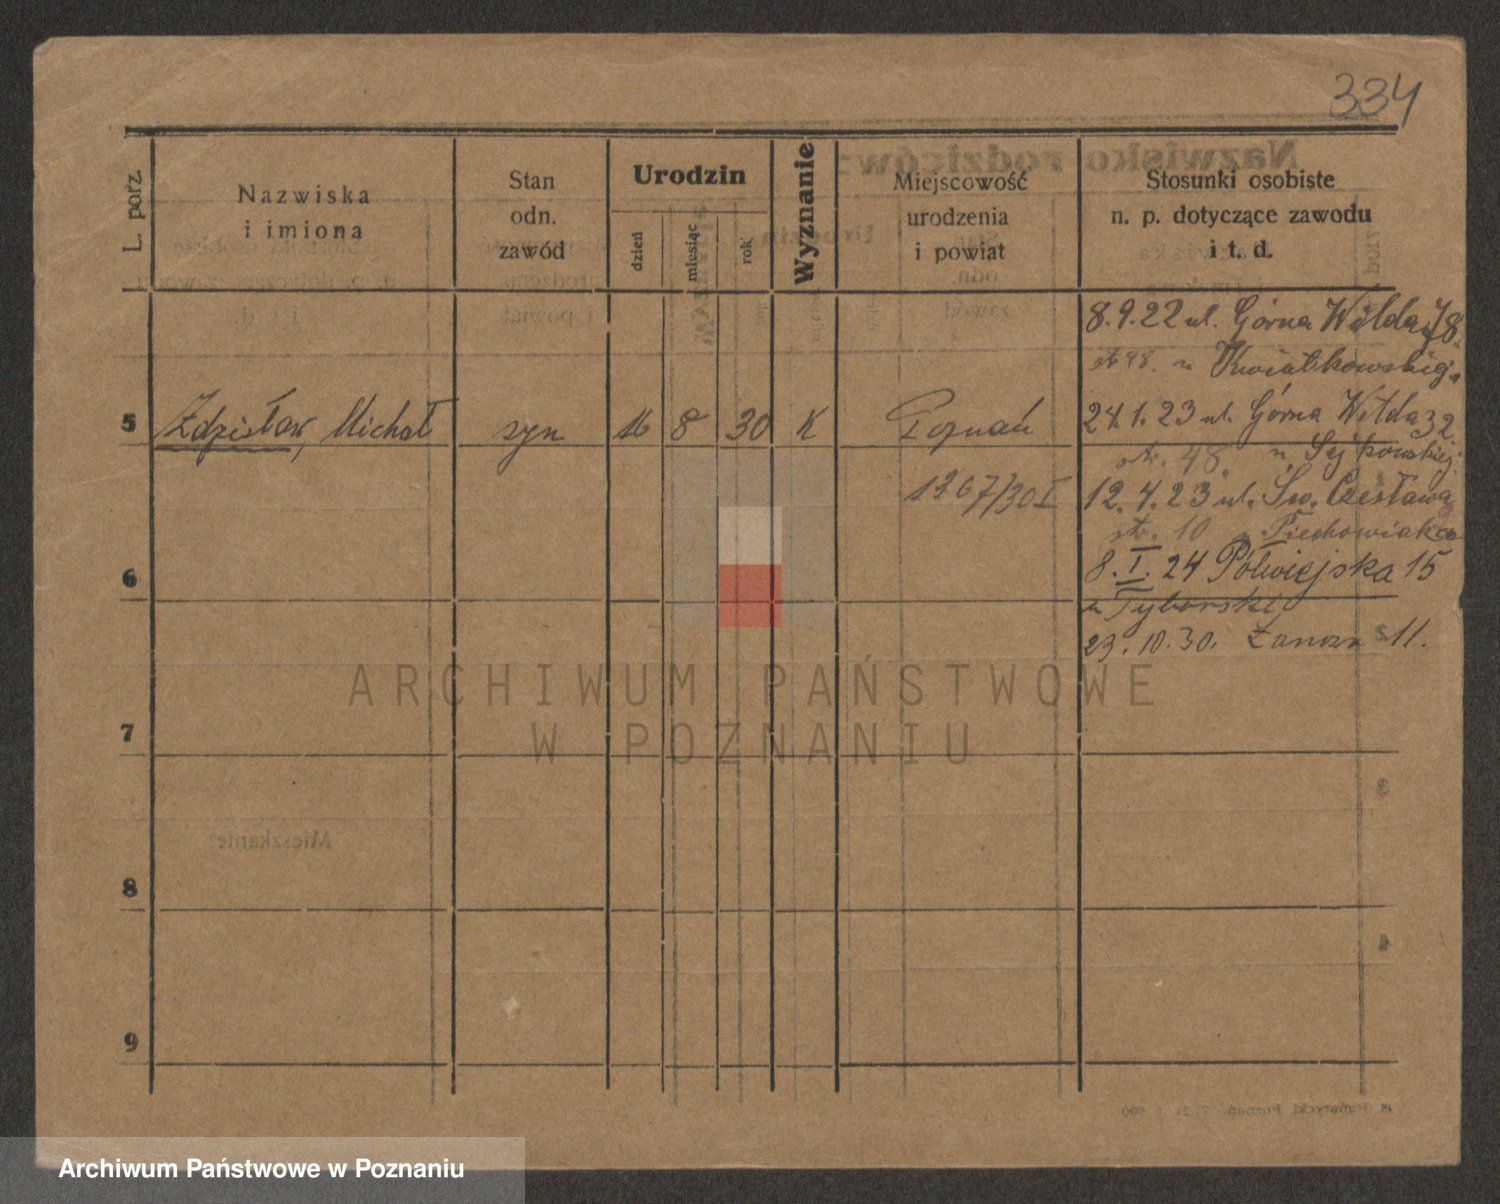 334
L. porz.
Nazwiska
i imiona
Stan
odn.
zawód
Urodzin
dzień
miesiąc
rok
Wyznanie
Miejscowość
urodzenia
i powiat
Stosunki osobiste
n. p. dotyczące zawodu
i t. d.
8.9.22 ul. Górna Wilda 78.
str 48. u Kwiatkowskiej
5 Zdzisław, Michał syn 16 8 30 K Poznań
1267/30 I
24.1.23 ul. Górna Wilda 32
str. 48 u
12.4.23 ul. Św. Czesława
str. 10 u Piechowiaka
6
8.I.24 Półwiejska 15
u Tyborski
23.10.30. 11.
7
8
9
Nazwisko rodziców:
Mieszkanie:
ARCHIWUM PAŃSTWOWE
W POZNANIU
Archiwum Państwowe w Poznaniu